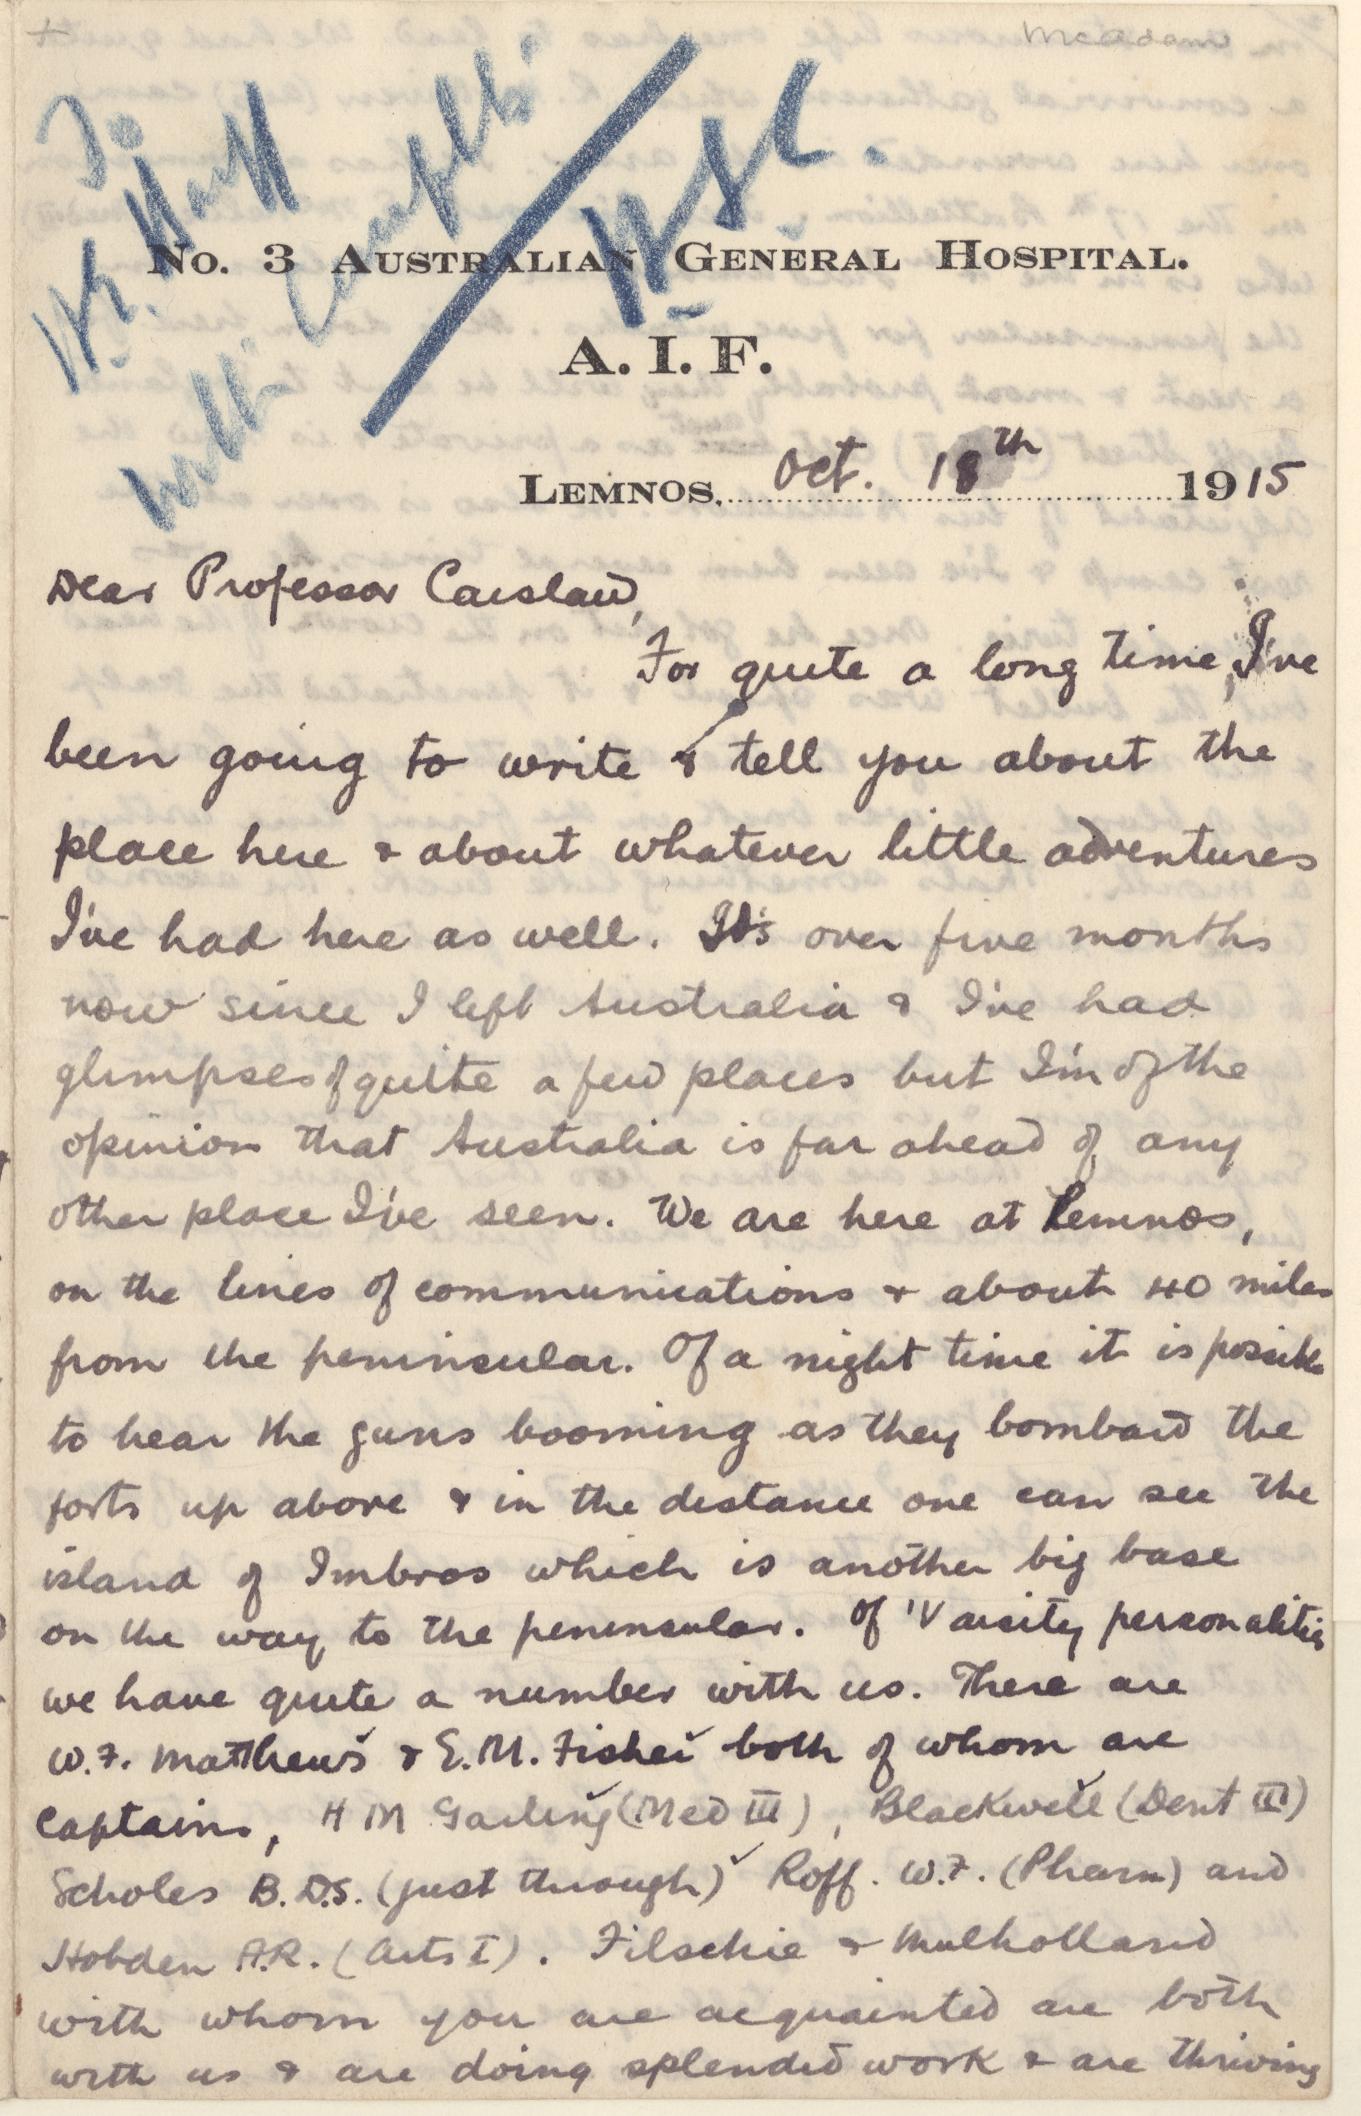 McAdam
No. 3 Australian General Hospital.
A. I. F.
Lemnos, Oct. 18th 1915
Dear Professor Carslaw,
For quite a long time, I've
been going to write & tell you about the
place here & about whatever little adventures
I've had here as well. It's over five months
now since I left Australia & I've had
glimpses of quite a few places but I'm of the
opinion that Australia is far ahead of any
other place I've seen. We are here at Lemnos,
on the lines of communications & about 40 miles
from the peninsular. Of a night time it is possible
to hear the guns booming as they bombard the
forts up above & in the distance one can see the
island of Imbros which is another big base
on the way to the peninsular. Of 'Varsity personalities
we have quite a number with us. There are
W.F. Matthews & E.M. Fisher both of whom are
Captains, H M Garling (Med III), Blackwell (Dent III)
Scholes B.D.S. (just through) Roff. W.F. (Pharm) and
Hobden A.R. (Arts I). Filschie & Mulholland
with whom you are acquainted are both
with us & are doing splendid work & are thriving